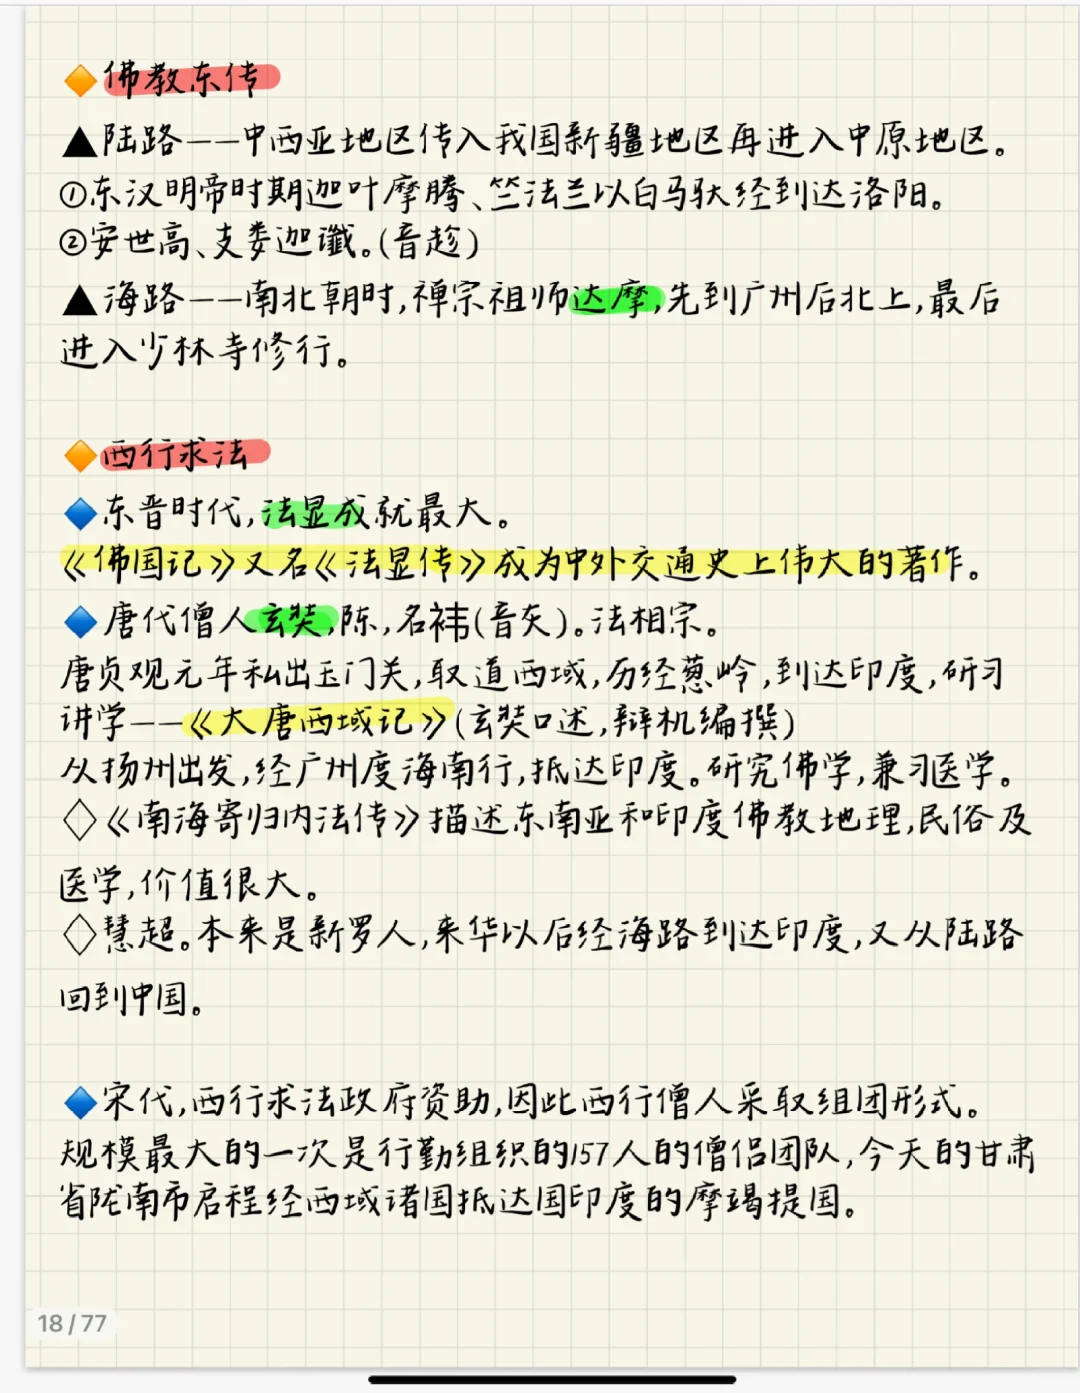 佛教东传
▲陆路——中西亚地区传入我国新疆地区再进入中原地区。
①东汉明帝时期迦叶摩腾、竺法兰以白马驮经到达洛阳。
②安世高、支娄迦谶。(音趁)
▲海路——南北朝时,禅宗祖师达摩,先到广州后北上,最后
进入少林寺修行。
西行求法
东晋时代,法显成就最大。
《佛国记》又名《法显传》成为中外交通史上伟大的著作。
唐代僧人玄奘,陈,名袆(音灰)。法相宗。
唐贞观元年私出玉门关,取道西域,历经葱岭,到达印度,研习
讲学——《大唐西域记》(玄奘口述,辩机编撰)
从扬州出发,经广州度海南行,抵达印度。研究佛学,兼习医学。
◇《南海寄归内法传》描述东南亚和印度佛教地理,民俗及
医学,价值很大。
◇慧超。本来是新罗人,来华以后经海路到达印度,又从陆路
回到中国。
宋代,西行求法政府资助,因此西行僧人采取组团形式。
规模最大的一次是行勤组织的157人的僧侣团队,今天的甘肃
省陇南市启程经西域诸国抵达国印度的摩竭提国。
18/77